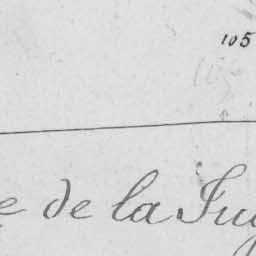 105
e de la Juy